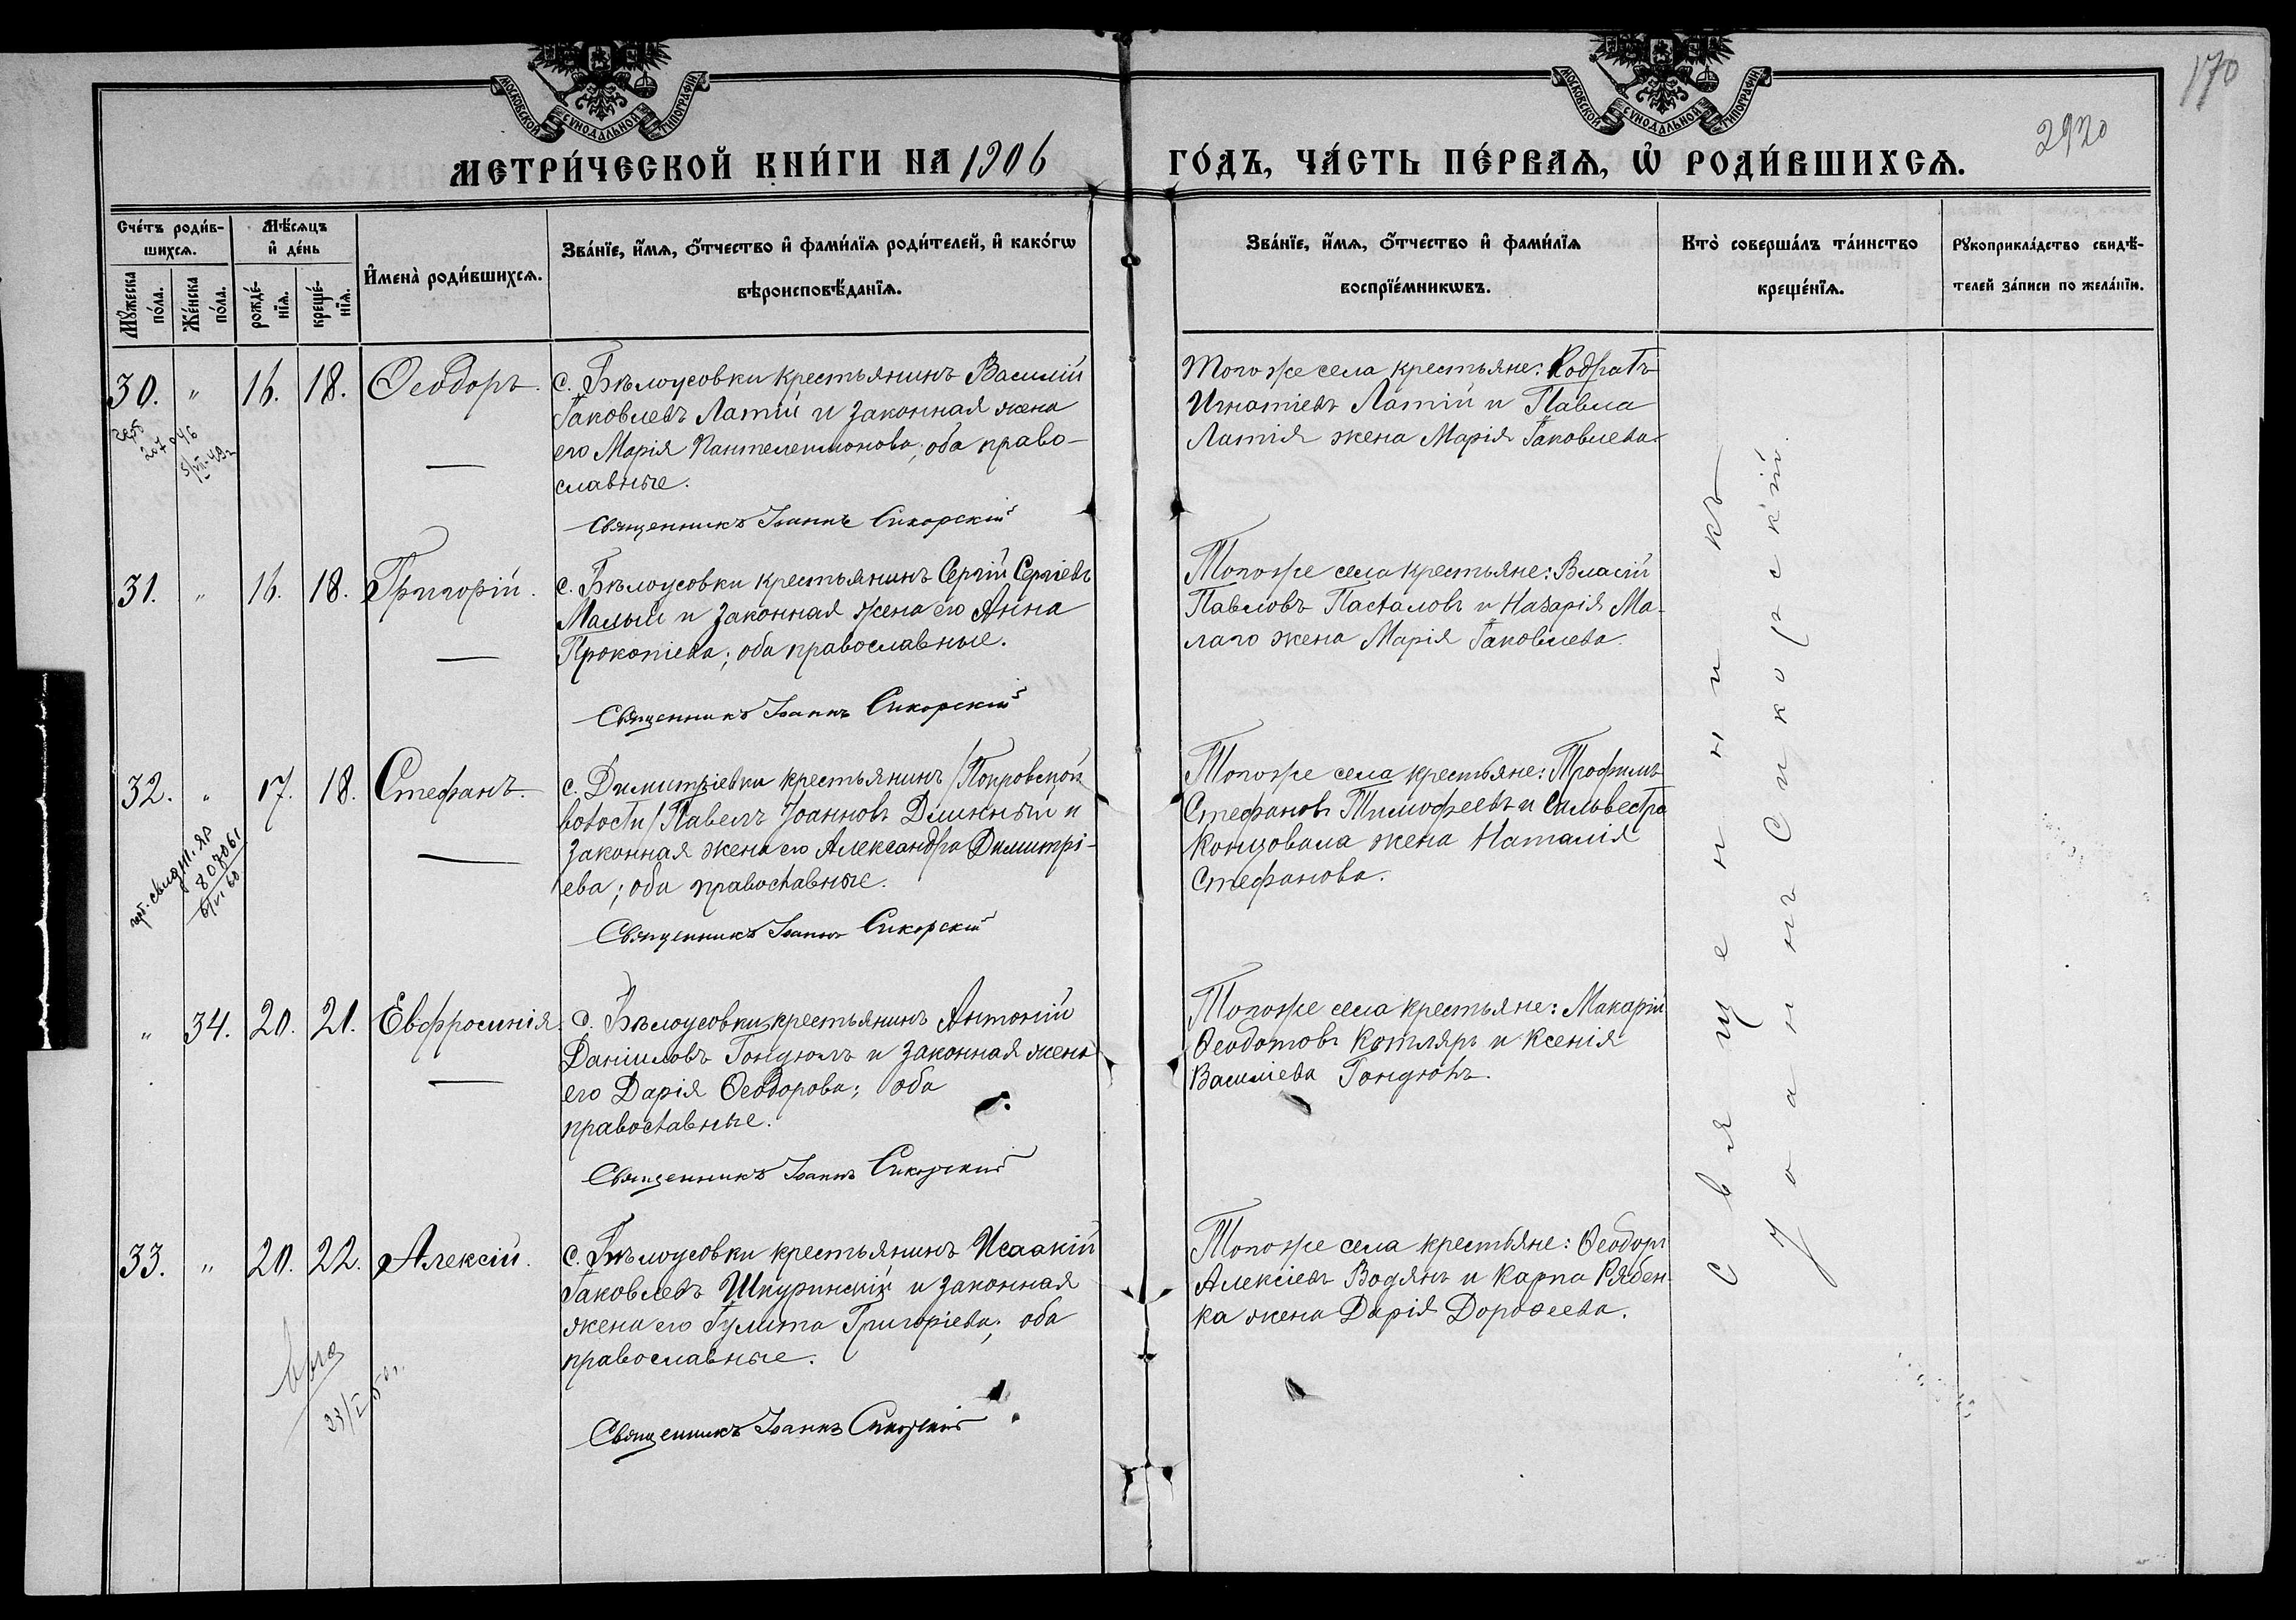 170
2920
МОСКОВСКОЙ СУНОДАЛЬНОЙ ТИПОГРАФІИ
МОСКОВСКОЙ СУНОДАЛЬНОЙ ТИПОГРАФІИ
МЕТРИ́ЧЕСКОЙ КНИ́ГИ НА 1906
ГО́ДЪ, ЧА́СТЬ ПЕ́РВАѦ, Ѡ҆ РОДИ́ВШИХСѦ.
Сче́тъ роди́в-
шихсѧ.
Мꙋ́жеска по́ла.
Же́нска по́ла.
Мѣ́сѧцъ
и҆ де́нь
рожде́-
нїѧ.
креще́-
нїѧ.
И҆мена̀ роди́вшихсѧ.
Зва́нїе, и҆́мѧ, ѻ҆́тчество и҆ фами́лїѧ роди́телей, и҆ како́гѡ
вѣроисповѣ́данїѧ.
Зва́нїе, и҆́мѧ, ѻ҆́тчество и҆ фами́лїѧ
воспрїе́мникѡвъ.
Кто̀ соверша́лъ та́инство
креще́нїѧ.
Рꙋкоприкла́дство свидѣ́-
телей за́писи по жела́нїю.
30. " 16. 18. Ѳеодоръ.
с. Бѣлоусовки крестьянинъ Василій
Іаковлевъ Латій и законная жена
его Марія Пантелеимонова; оба право-
славные.
Священникъ Іоаннъ Сикорскій
Того же села крестьяне: Кодратъ
Игнатіевъ Латій и Павла
Латія жена Марія Іаковлева
31. " 16. 18. Григорій.
с. Бѣлоусовки крестьянинъ Сергій Сергіевъ
Малый и законная жена его Анна
Прокопіева; оба православные.
Священникъ Іоаннъ Сикорскій
Того же села крестьяне: Власій
Павловъ Пасталовъ и Назарія Ма-
лаго жена Марія Іаковлева.
32. " 17. 18. Стефанъ.
807061
с. Димитріевки крестьянинъ /Покровской
волости/ Павелъ Іоанновъ Длинный и
законная жена его Александра Димитрі-
ева; оба православные.
Священникъ Іоаннъ Сикорскій
Того же села крестьяне: Трофимъ
Стефановъ Тимофеевъ и Сильвестра
жена Наталія
Стефанова.
" 34. 20. 21. Евфросинія.
с. Бѣлоусовки крестьянинъ Антоній
Даніиловъ Гондюлъ и законная жена
его Дарія Ѳеодорова; оба
православные.
Священникъ Іоаннъ Сикорскій
Того же села крестьяне: Макарій
Ѳеодотовъ Котляръ и Ксенія
Василіева
33. " 20. 22. Алексій.
23/I 50 г.
с. Бѣлоусовки крестьянинъ Исаакій
Іаковлевъ Шкуринскій и законная
жена его Іулита Григоріева; оба
православные.
Священникъ Іоаннъ Сикорскій
Того же села крестьяне: Ѳеодоръ
Алексіевъ Водянъ и Карпа Рябен-
ка жена Дарія Дороѳеева.
Священникъ
Іоаннъ Сикорскій.